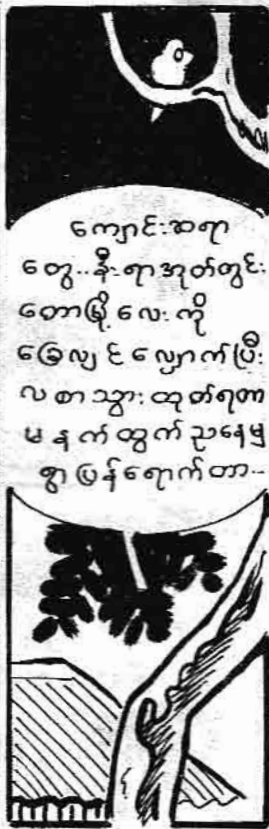 ကျောင်းဆရာ
တွေ..နီးရာအုတ်တွင်း
တောမြို့လေးကို
ခြေလျင်လျှောက်ပြီး
လစာသွားထုတ်ရတာ
မနက်ထွက်ညနေမှ
ရွာပြန်ရောက်တာ...